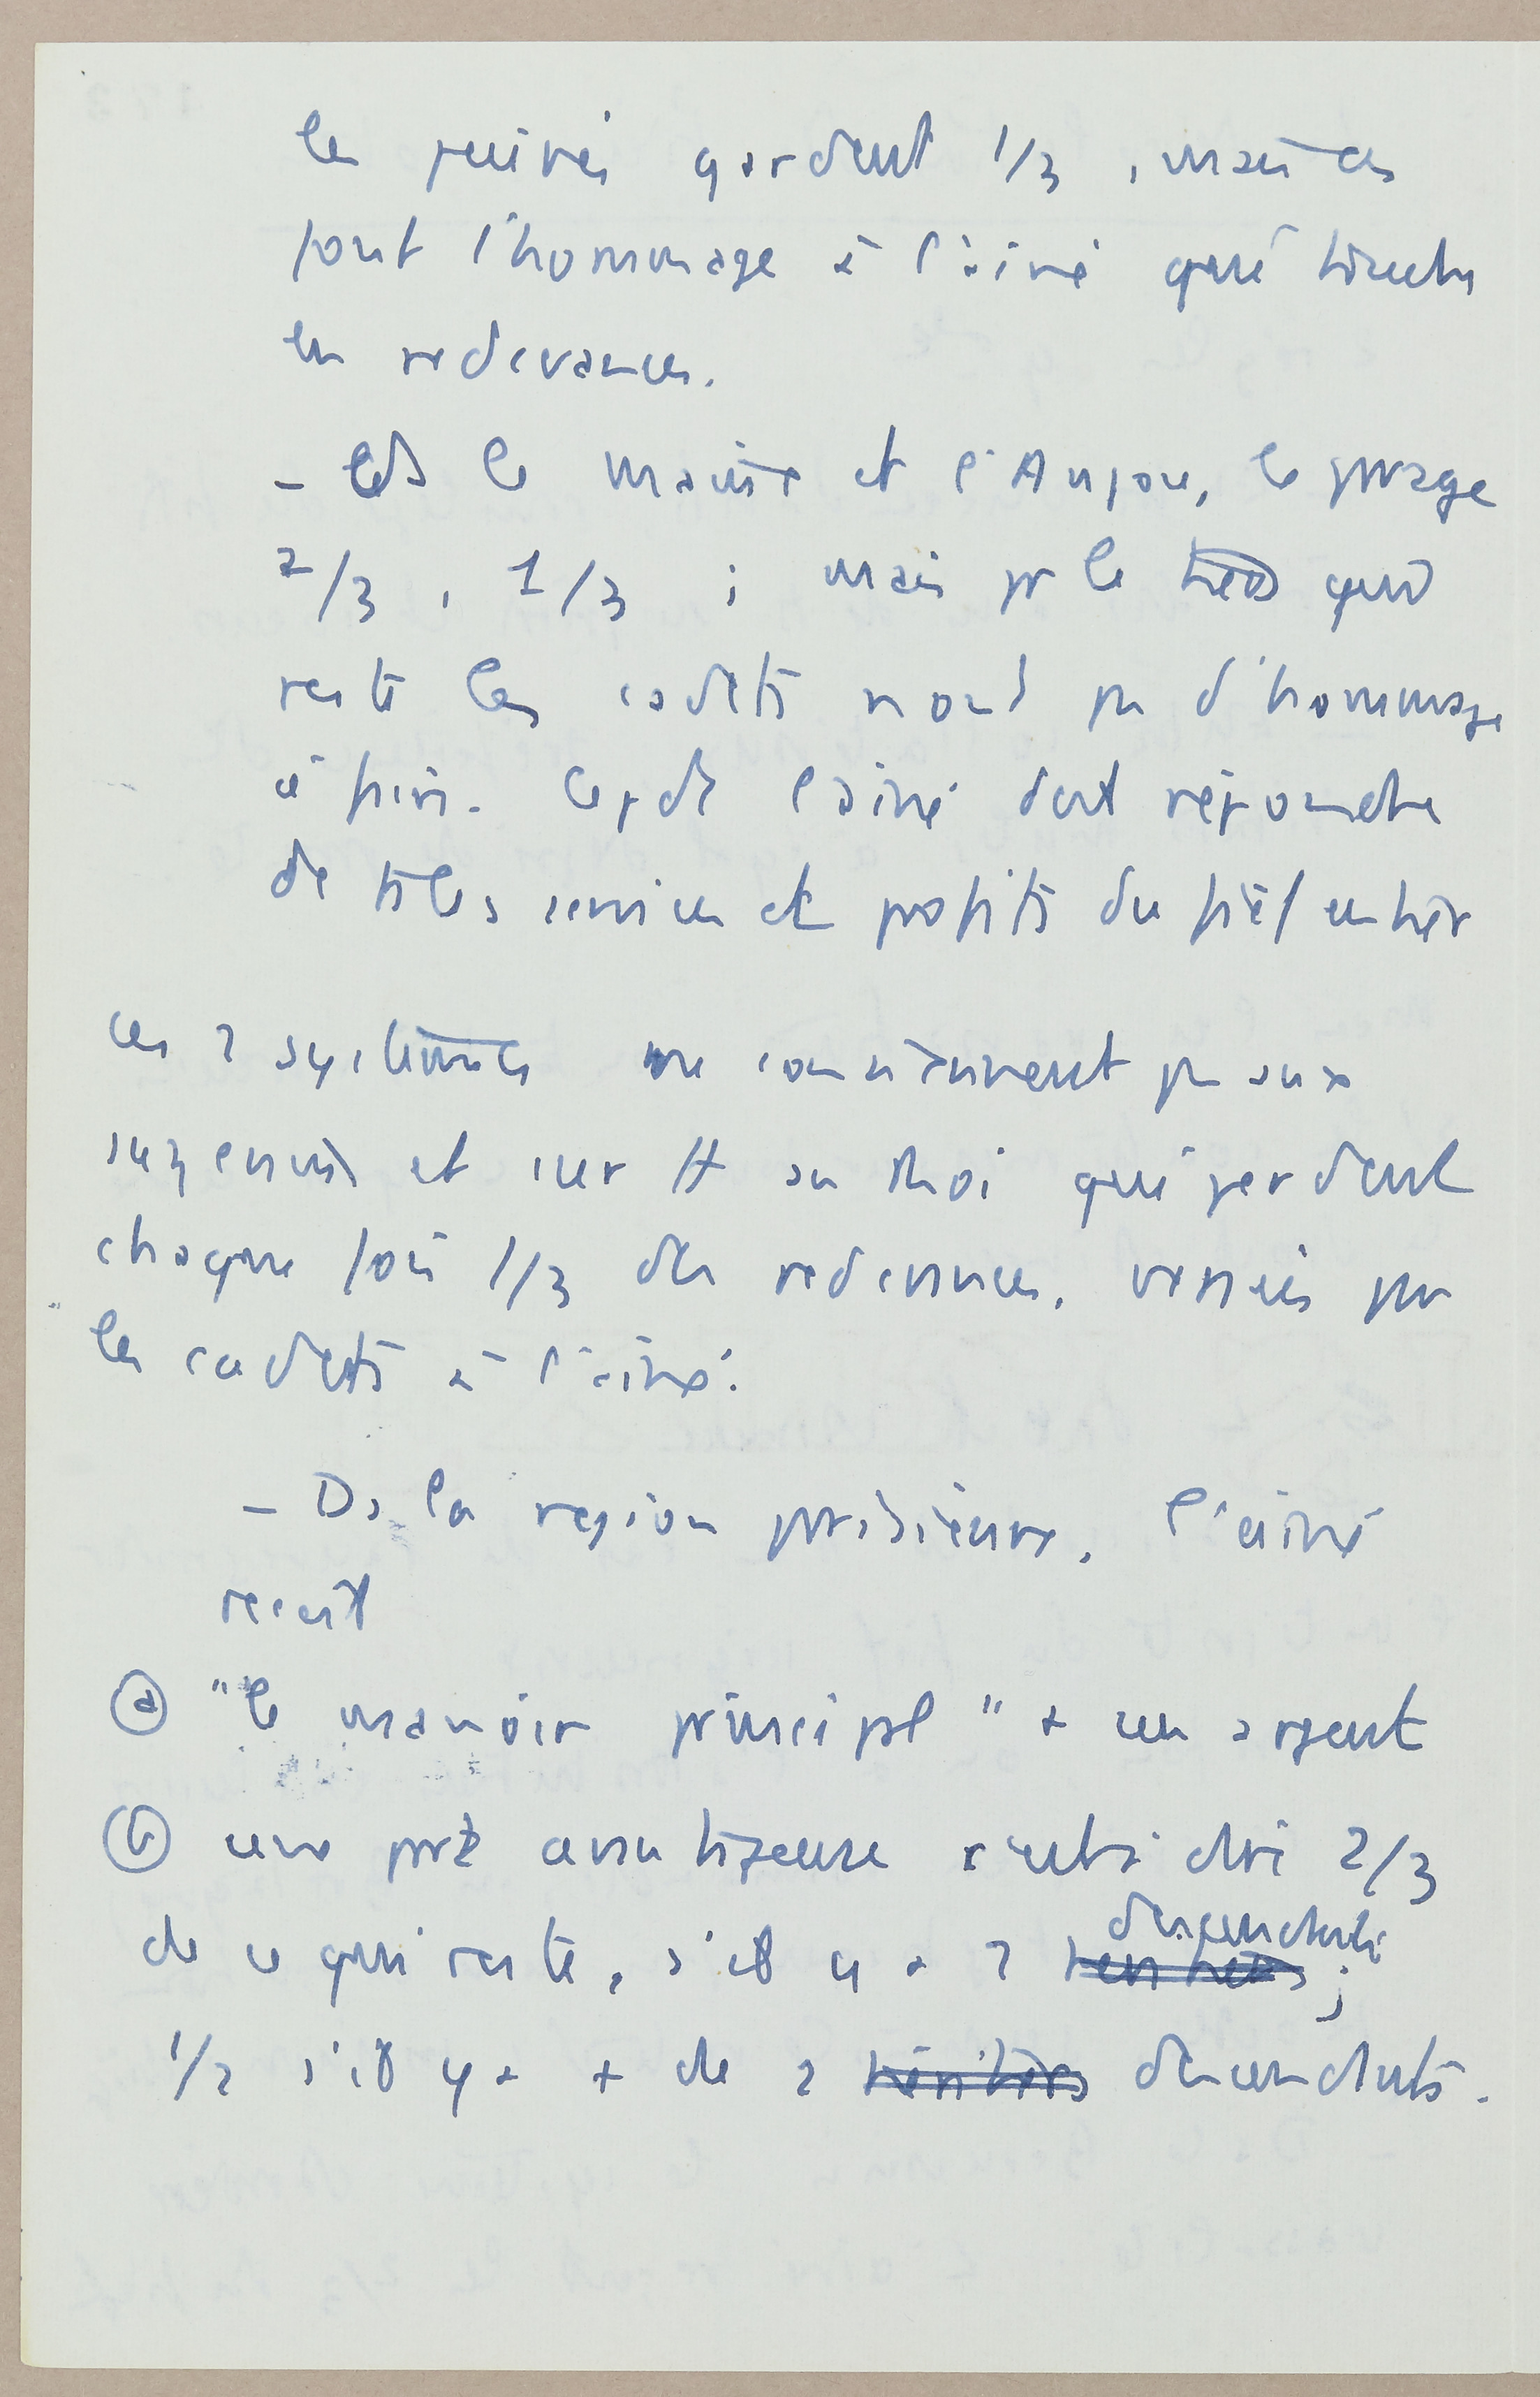 les puînés gardent 1/3, mais ces
font l'hommage à l'aîné qui touche
les redevances.
- Ds le Maine et l'Anjou, le parage
2/3, 1/3 ; mais pr le tiers qui
reste les cadets n'ont pas d'hommage
à faire. Cepdt l'aîné doit répondre
de ts les services et profits du fief entier
Ces 2 systèmes ne conviennent pas aux
suzerains et surtt au Roi qui perdent
chaque fois 1/3 des redevances, versées par
les cadets à l'aîné.
- Ds la région parisienne, l'aîné
reçoit
(a) "le manoir principal" + un arpent
(b) une part avantageuse c'est-à-dire 2/3
de ce qui reste, s'il y a 2 descendants ;
1/2 s'il y a + de 2 héritiers descendants.